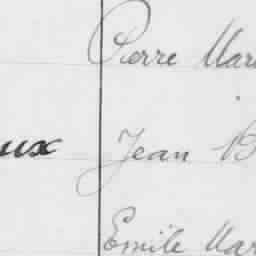 Pierre Mar
ux Jean B
Emile Mar